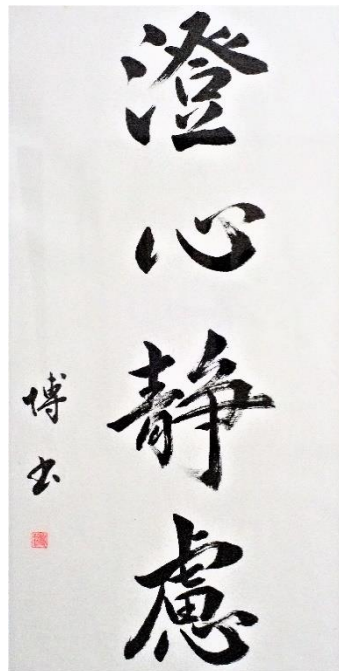 澄心静慮
博書